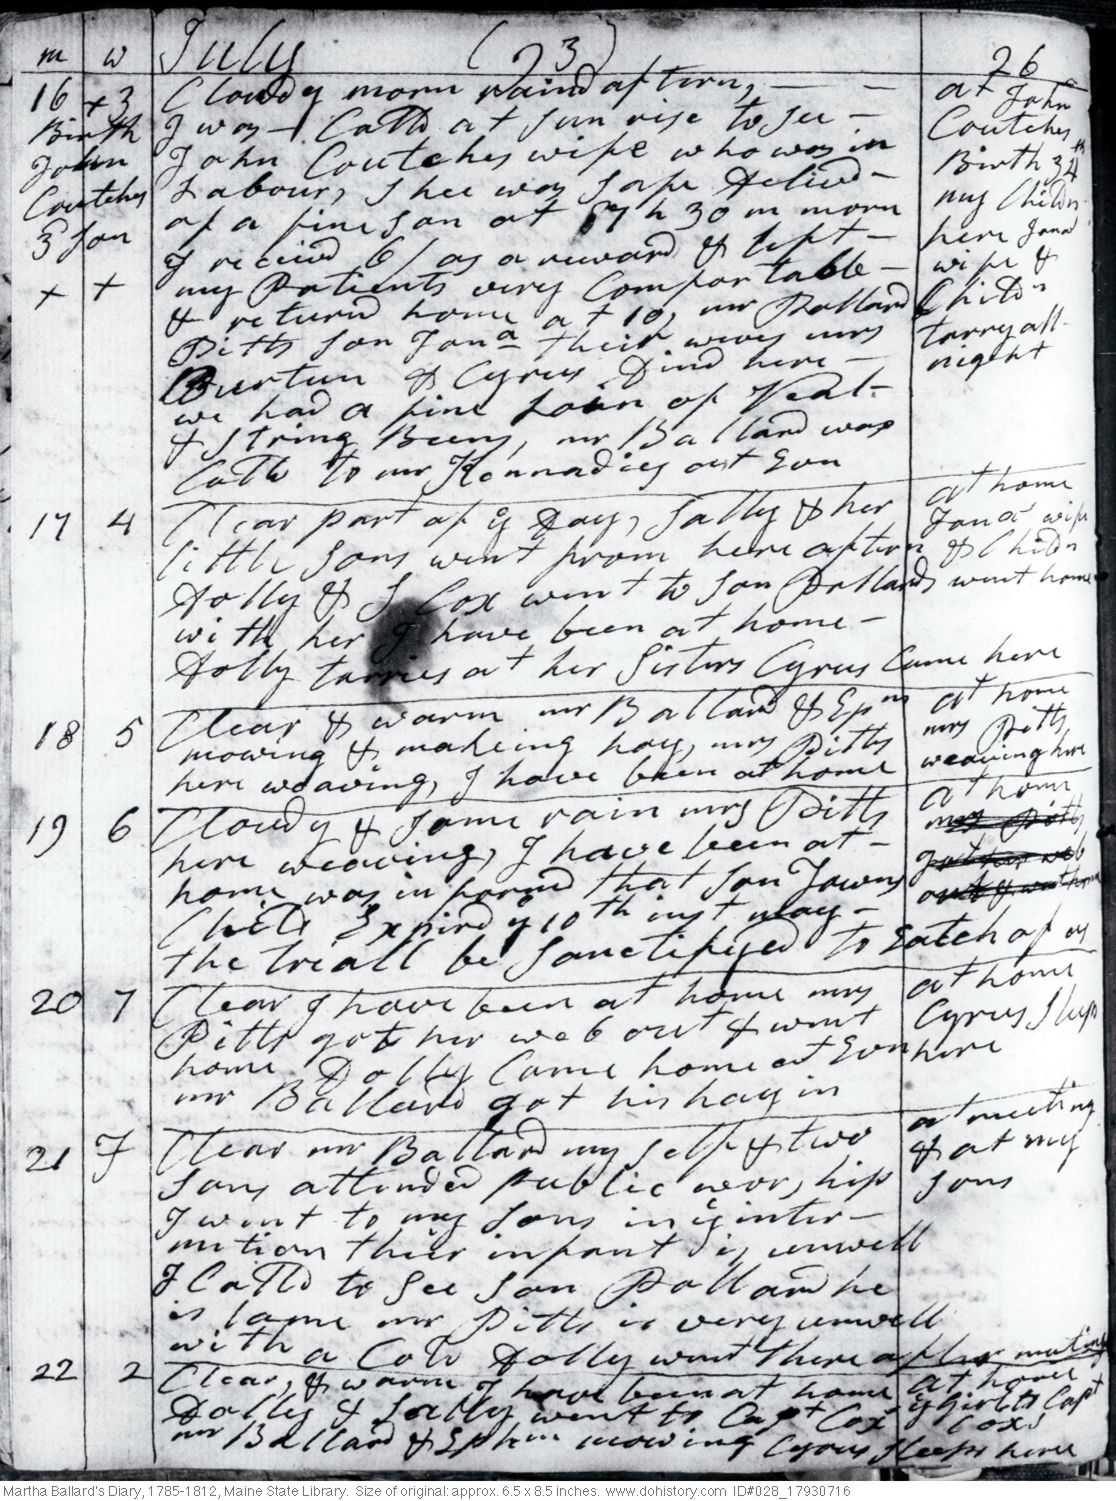 m w July (23) 26
16 x 3 Cloudy morn raind aftern, — — at John
Birth I was — Calld at sun rise to see — Coutches
John John Coutches wife who was in Birth 34th
Coutches Labour, Shee was safe Delivd — my Childn
3d Son of a fine son at 7 h 30 m morn here Jonas
x x I receivd 6/ as a reward & left — wife &
my Patients very Comfortable — Childn
& returnd home at 10, mr Pollard tarry all
Pitts son Jona their wives mrs night
Burtun & Cyrus Dind here —
we had a fine Loin of Veal —
& string Beens, mr Ballard was
Calld to mr Kennadies at Evn
17 4 Clear part of ye Day, Sally & her at home
little sons went from here aftern Jonas wife & Childn
Dolly & S Cox went to son Pollards went home
with her I have been at home —
Dolly tarries at her Sisters Cyrus Came here
18 5 Clear & warm mr Ballard & Epm at home
mowing & makeing hay, mrs Pitts mrs Pitts
here weaving, I have been at home weaving here
19 6 Cloudy & some rain mrs Pitts at home
here weaving, I have been at — mrs Pitts
home was informd that son Towns got her web
Child Expird ye 10th inst may — out & went home
the triall be sanctifyed to Eatch of us
20 7 Clear I have been at home mrs at home
Pitts got her web out & went Cyrus sleeps
home. Dolly Came home at Evn here
mr Ballard got his hay in
21 F Clear mr Ballard my self & two at meeting
sons attended public worship & at my
I went to my sons in ye inter — sons
mition their infant is unwell
I Calld to See son Pollard he
is lame mr Pitts is very unwell
with a Cold Dolly went there after meeting
22 2 Clear, & warm I have been at home at home
Dolly & Sally went to Capt Cox ye Girls to Capt Coxs
mr Ballard & Ephm mowing Cyrus sleeps here
Martha Ballard's Diary, 1785-1812, Maine State Library. Size of original: approx. 6.5 x 8.5 inches. www.dohistory.com ID#028_17930716